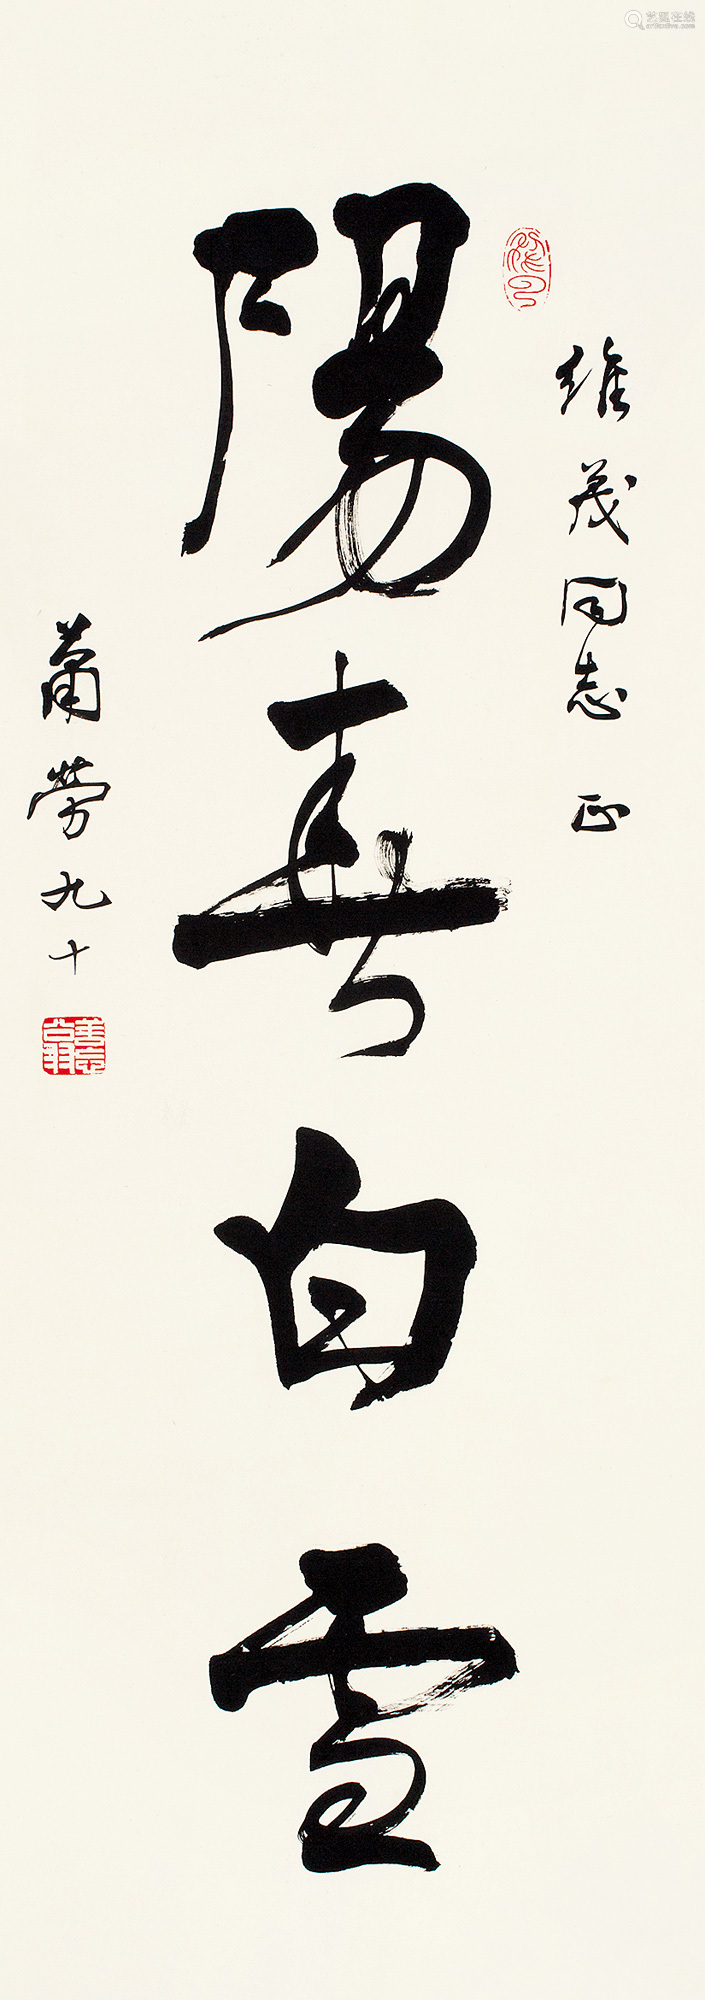 維茂同志 正
陽春白雪
蕭勞九十
艺狐在线
artfoxlive.com